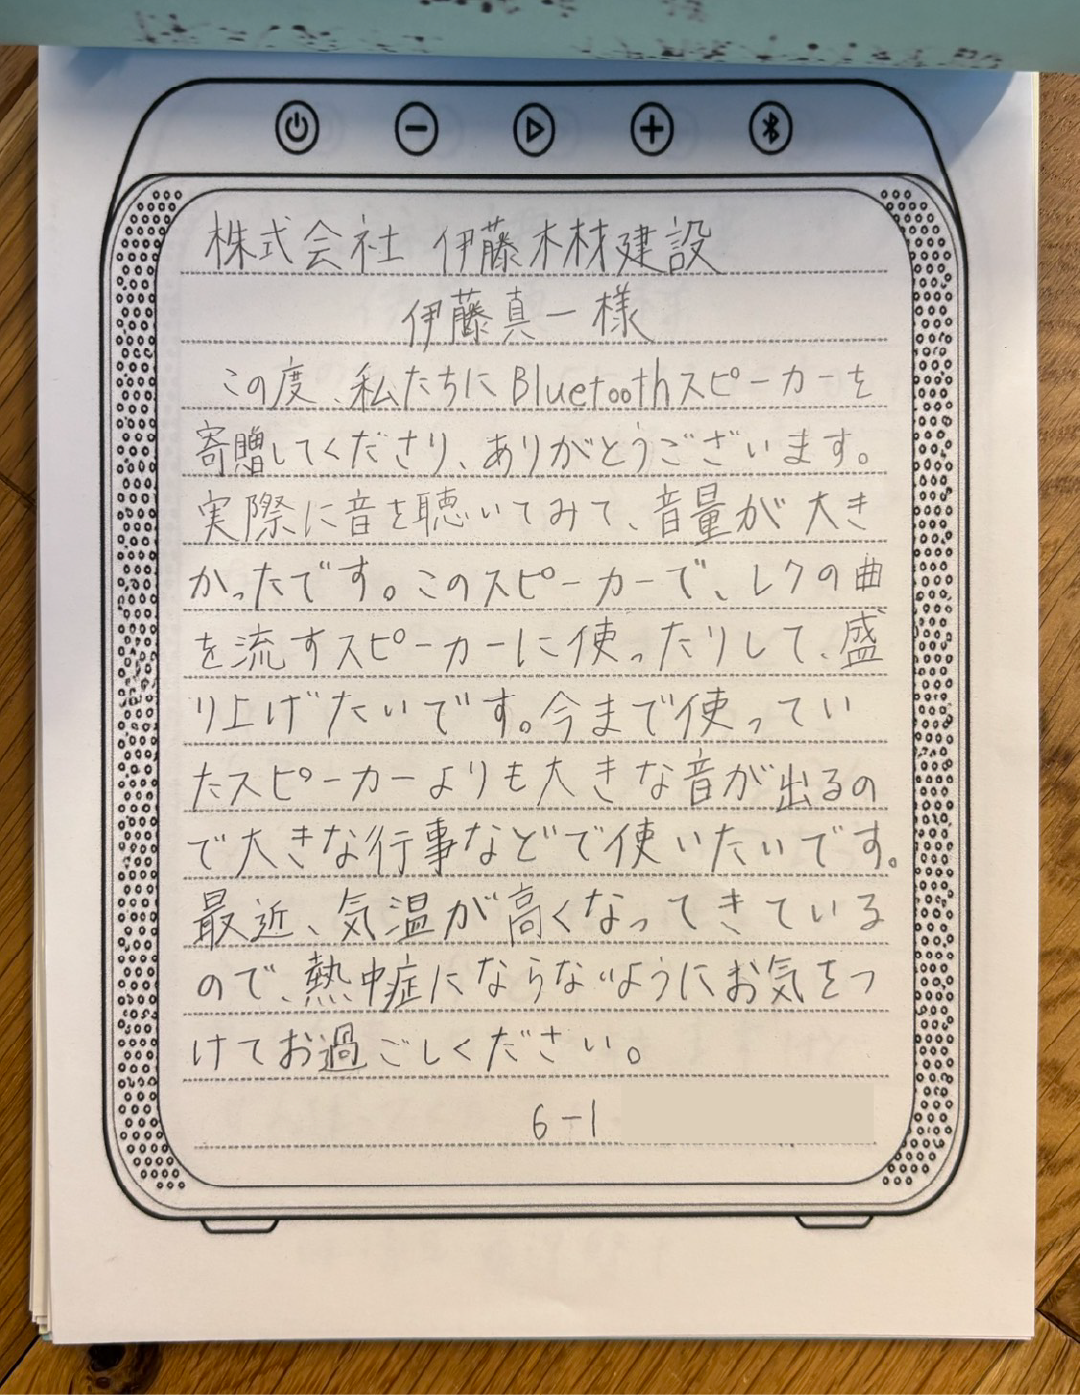 株式会社 伊藤木材建設
伊藤真一様
この度、私たちにBluetoothスピーカーを
寄贈してくださり、ありがとうございます。
実際に音を聴いてみて、音量が大き
かったです。このスピーカーで、レクの曲
を流すスピーカーに使ったりして、盛
り上げたいです。今まで使ってい
たスピーカーよりも大きな音が出るの
で大きな行事などで使いたいです。
最近、気温が高くなってきている
ので、熱中症にならないようにお気をつ
けてお過ごしください。
6-1